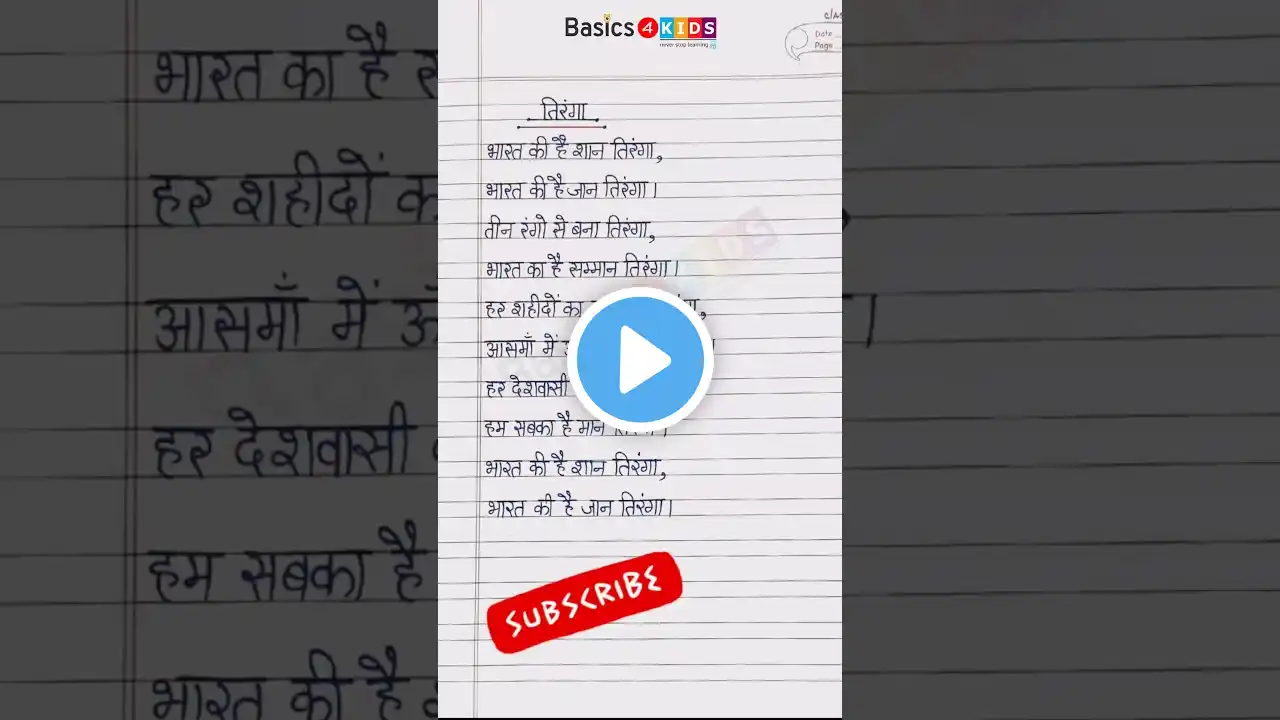 Basics 4 KIDS
never stop learning
Date
Page
तिरंगा
भारत की है शान तिरंगा,
भारत की है जान तिरंगा।
तीन रंगो से बना तिरंगा,
भारत का है सम्मान तिरंगा।
हर शहीदों का
आसमाँ में
हर देशवासी
हम सबका है मान
भारत की है शान तिरंगा,
भारत की है जान तिरंगा।
SUBSCRIBE
भारत का है
हर शहीदों
आसमाँ में
हर देशवासी
हम सबका है
भारत की है